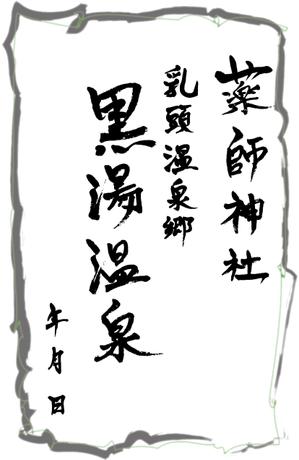 薬師神社
乳頭温泉郷
黒湯温泉
年月日